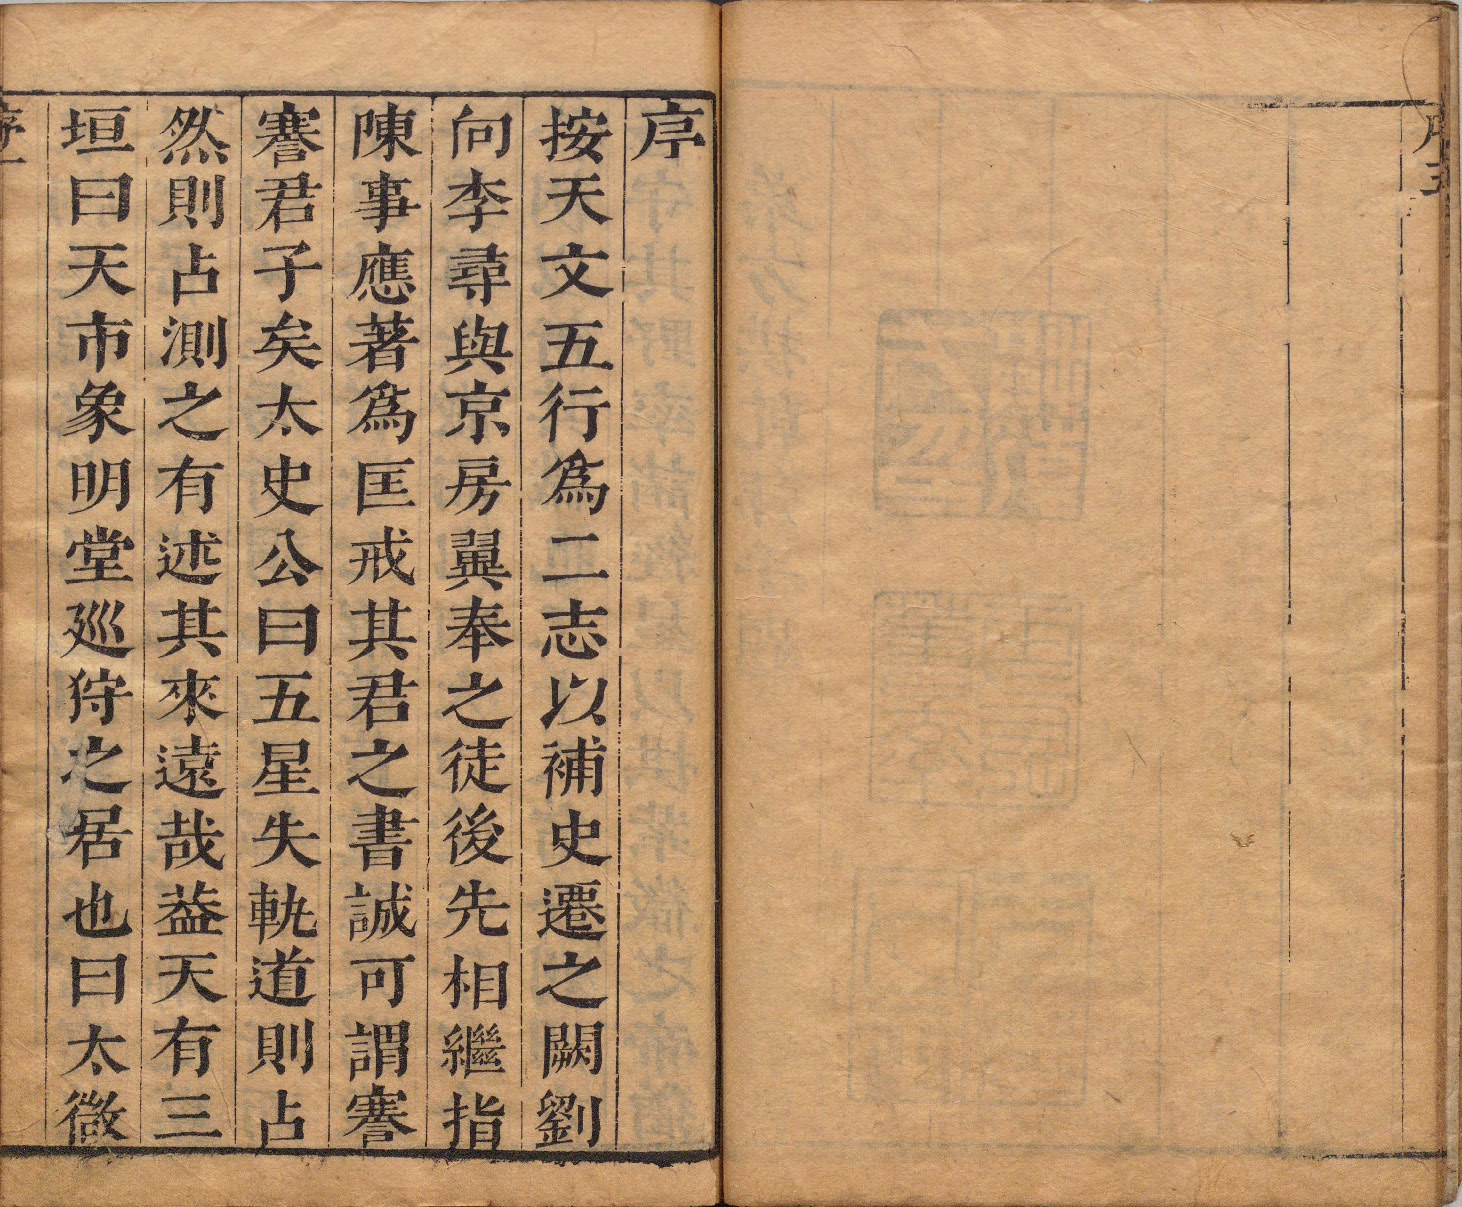 序五
序
按天文五行爲二志以補史遷之闕劉
向李尋與京房翼奉之徒後先相繼指
陳事應著爲匡戒其君之書誠可謂謇
謇君子矣太史公曰五星失軌道則占
然則占測之有述其來遠哉葢天有三
垣曰天市象明堂廵狩之居也曰太微
序一